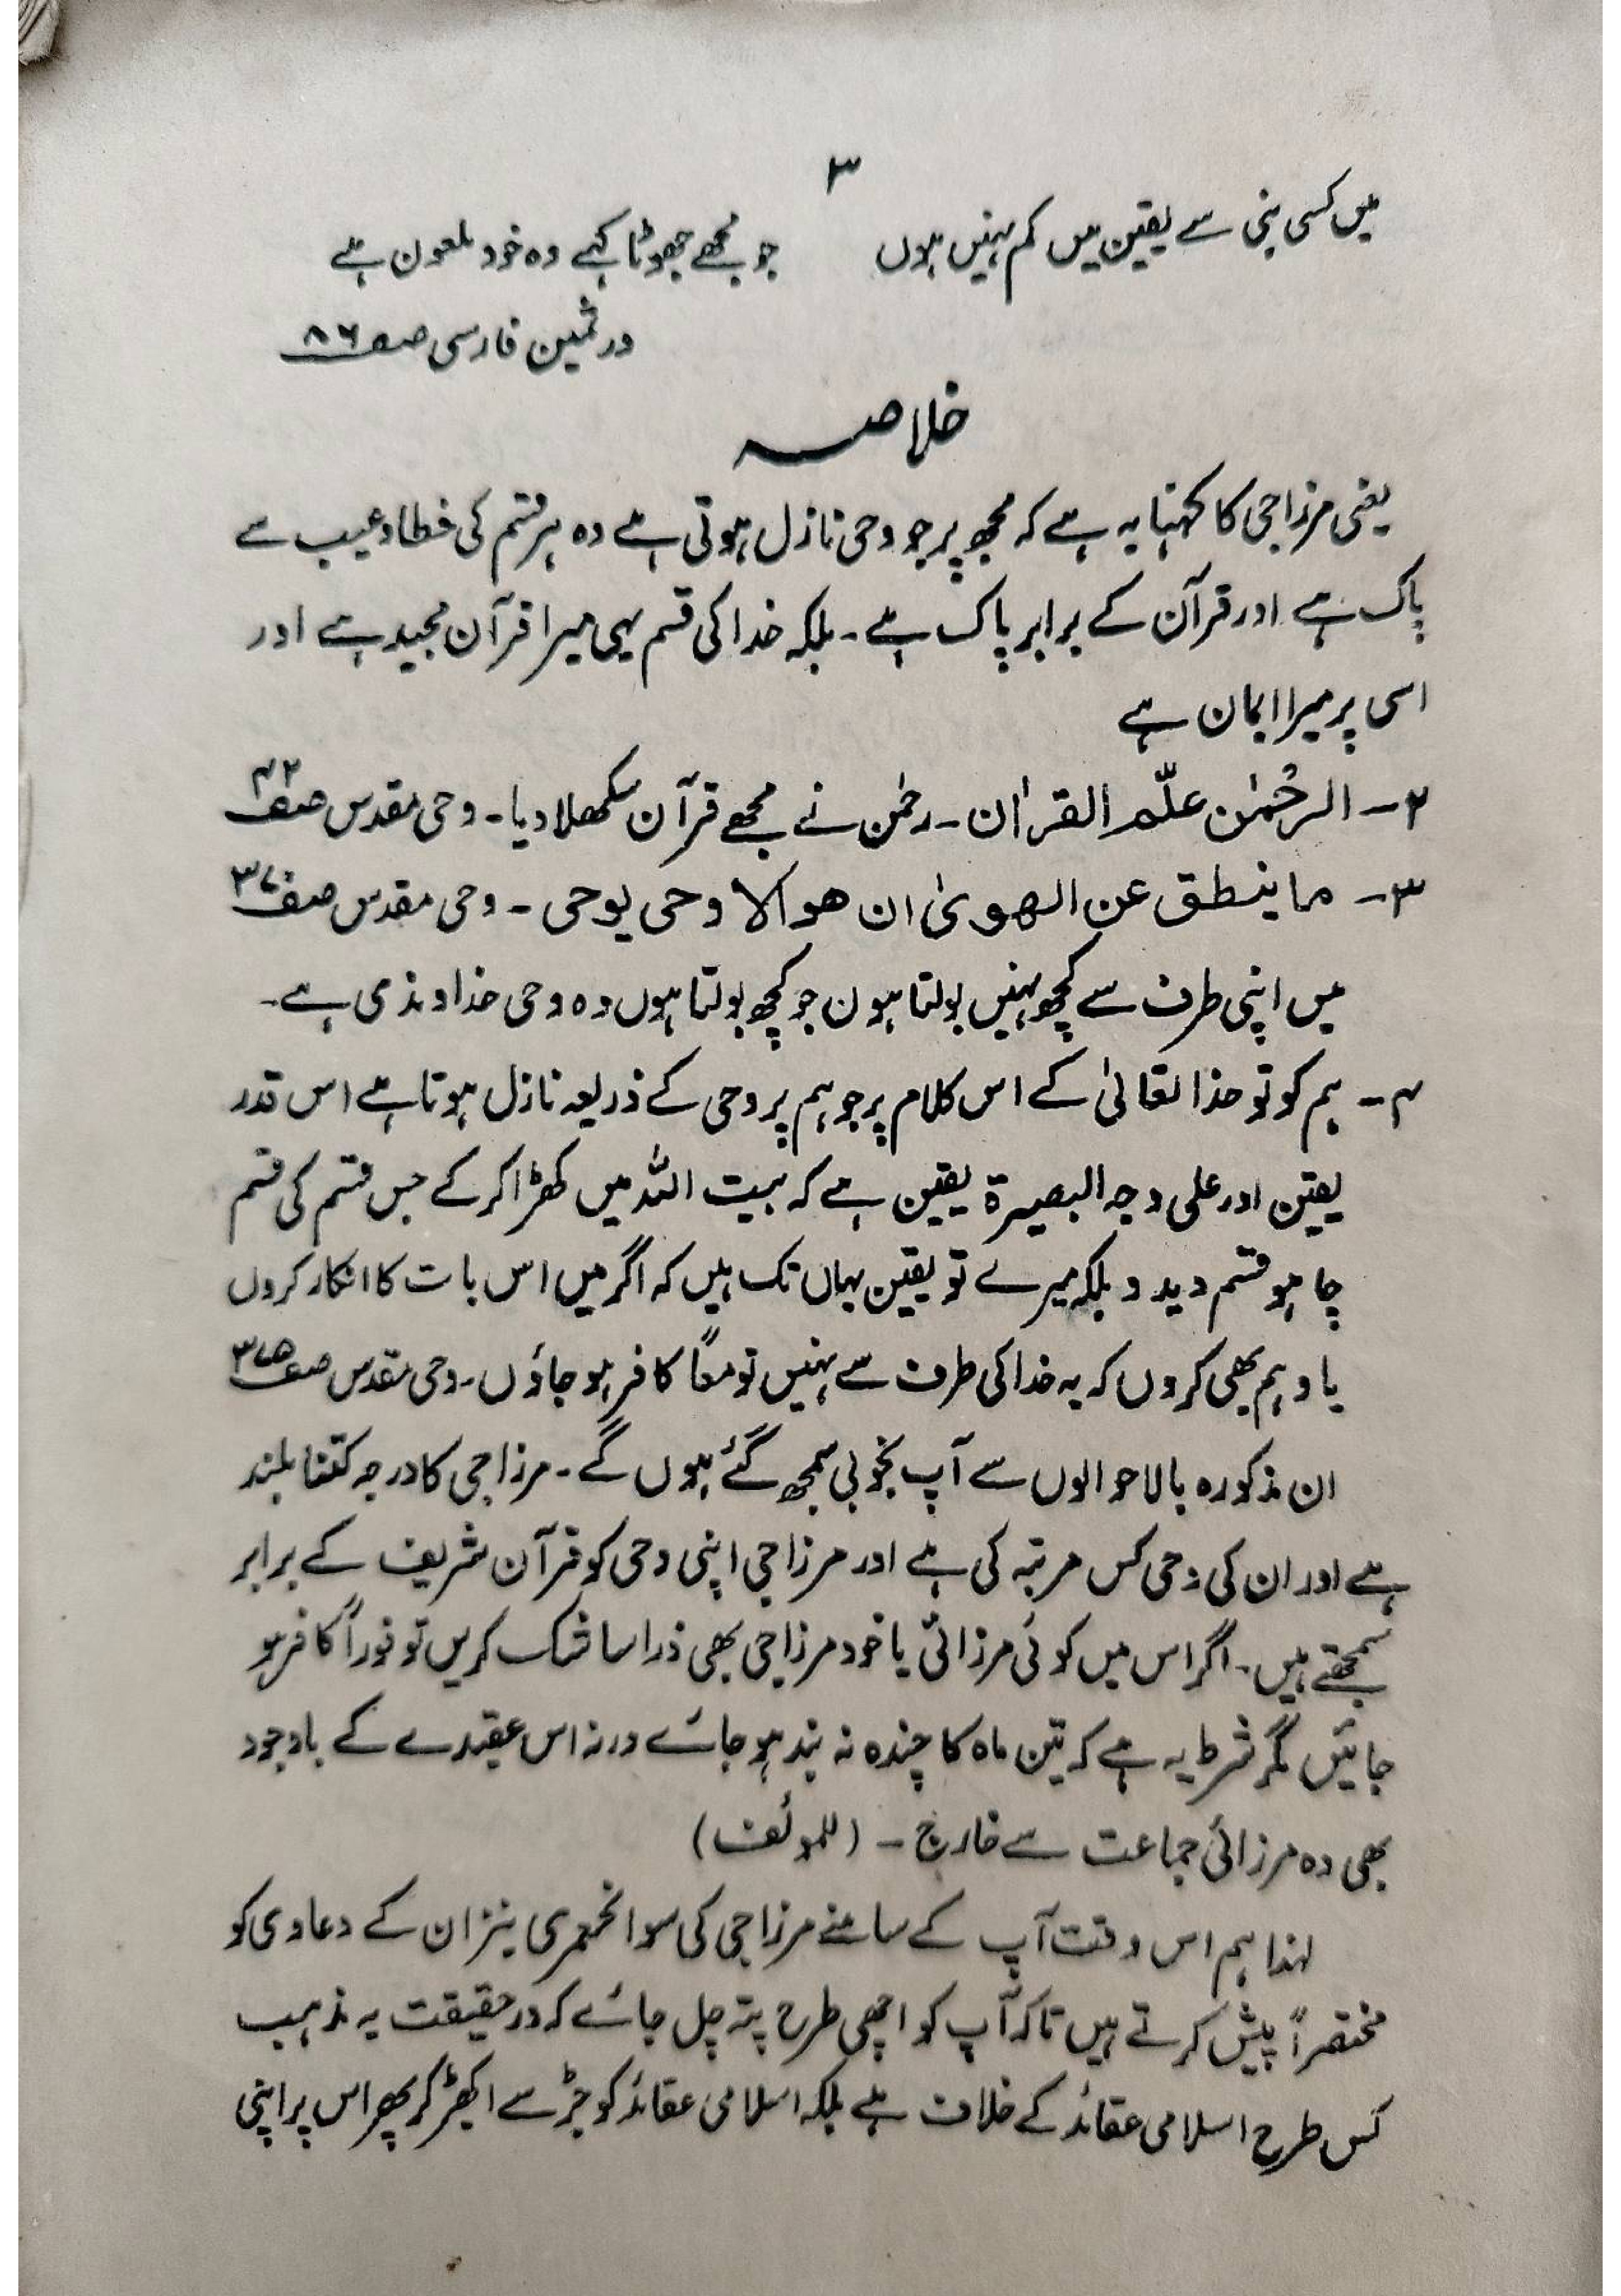 ۳
میں کسی نبی سے یقین میں کم نہیں ہوں جو مجھے جھوٹا کہے وہ خود ملعون ہے
درثمین فارسی صفہ ۸۶
خلاصہ
یعنی مرزا جی کا کہنا یہ ہے کہ مجھ پر جو وحی نازل ہوتی ہے وہ ہر قسم کی خطا و عیب سے
پاک ہے اور قرآن کے برابر پاک ہے۔ بلکہ خدا کی قسم یہی میرا قرآن مجید ہے اور
اسی پر میرا ایمان ہے
۲۔ الرحمٰن علّم القرآن۔ رحمٰن نے مجھے قرآن سکھلا دیا۔ وحی مقدس صفہ ۴۲
۳۔ ما ینطق عن الھویٰ ان ھو الا وحی یوحی۔ وحی مقدس صفہ
میں اپنی طرف سے کچھ نہیں بولتا ہوں جو کچھ بولتا ہوں وہ وحی خداوندی ہے۔
۴۔ ہم کو تو خدا تعالیٰ کے اس کلام پر جو ہم پر وحی کے ذریعہ نازل ہوتا ہے اس قدر
یقین اور علی وجہ البصیرۃ یقین ہے کہ بیت اللہ میں کھڑا کر کے جس قسم کی قسم
چاہو قسم دیدو بلکہ میرے تو یقین یہاں تک ہیں کہ اگر میں اس بات کا انکار کروں
یا وہم بھی کروں کہ یہ خدا کی طرف سے نہیں تو معاً کافر ہو جاؤں۔ وحی مقدس صفہ
ان مذکورہ بالا حوالوں سے آپ بخوبی سمجھ گئے ہوں گے۔ مرزا جی کا درجہ کتنا بلند
ہے اور ان کی وحی کس مرتبہ کی ہے اور مرزا جی اپنی وحی کو قرآن شریف کے برابر
سمجھتے ہیں۔ اگر اس میں کوئی مرزائی یا خود مرزا جی بھی ذرا سا شک کریں تو فوراً کافر ہو
جائیں مگر شرط یہ ہے کہ تین ماہ کا چندہ نہ بند ہو جائے ورنہ اس عقیدے کے باوجود
بھی وہ مرزائی جماعت سے خارج۔ (للمؤلف)
لہذا ہم اس وقت آپ کے سامنے مرزا جی کی سوانحعمری نیز ان کے دعاوی کو
مختصراً پیش کرتے ہیں تاکہ آپ کو اچھی طرح پتہ چل جائے کہ درحقیقت یہ مذہب
کس طرح اسلامی عقائد کے خلاف ہے بلکہ اسلامی عقائد کو جڑ سے اکھڑ کر پھر اس پر اپنی